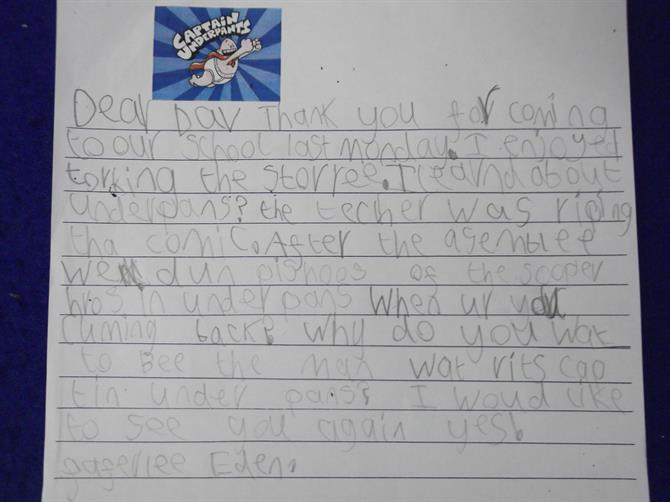 CAPTAIN
UNDERPANTS
Dear Dav Thank you for coming
to our school last monday. I enjoyed
torking the storree. I learnd about
underpans? the techer was riping
tha comic. After the asemblee
we dun pishoos of the scooper
hros in underpans When ur you
cuming back? why do you wat
to bee the man wat rits cap
tin under pans? I woud like
to see you again yes!
Eden.